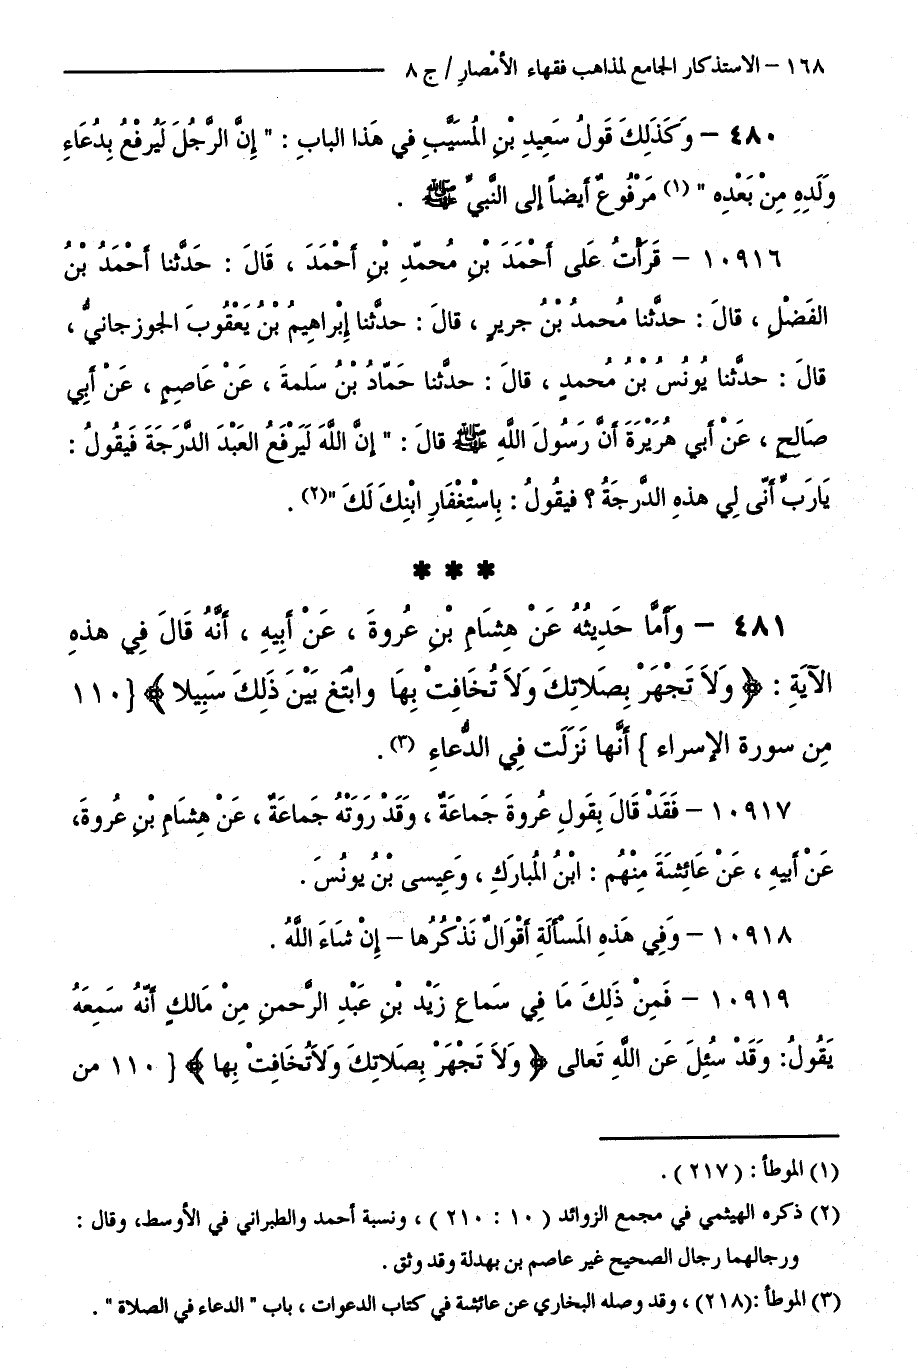 ١٦٨ – الاستذكار الجامع لمذاهب فقهاء الأمْصارِ / ج ٨
٤٨٠ – وَكَذَلِكَ قَولُ سَعِيدِ بْنِ المُسَيَّبِ في هَذا البابِ : " إِنَّ الرَّجُلَ لَيُرفْعُ بِدُعَاءِ
وَلَدِهِ مِنْ بَعْدِه " (١) مَرْفُوعٌ أيضاً إلى النَّبيِّ ﷺ .
١٠٩١٦ – قَرَأتُ عَلى أحْمَدَ بْنِ مُحمّدِ بْنِ أحْمَدَ ، قَالَ : حَدَّثنا أحْمَدُ بْنُ
الفَضْلِ ، قالَ : حدثَّنا مُحمدُ بْنُ جريرٍ ، قالَ : حدثَّنا إبْراهِيمُ بْنُ يَعْقُوبَ الجوزجانيُّ ،
قالَ : حدثَّنا يُونُسُ بْنُ مُحمدٍ ، قالَ : حدثَّنا حَمَّادُ بْنُ سَلمةَ ، عَنْ عَاصِمٍ ، عَنْ أبي
صَالحٍ ، عَنْ أبي هُرَيْرَةَ أنَّ رَسُولَ اللَّهِ ﷺ قالَ : " إنَّ اللَّهَ لَيَرْفَعُ العَبْدَ الدَّرَجَةَ فَيقُولُ :
يَارَبِّ أنَّى لِي هذهِ الدَّرجَةُ ؟ فيقُولُ : بِاسْتِغْفَارِ ابْنِكَ لَكَ "(٢) .
* * *
٤٨١ – وَأمَّا حَدِيثُهُ عَنْ هِشامِ بْنِ عُروةَ ، عَنْ أبِيهِ ، أنَّهُ قَالَ فِي هذهِ
الآيَةِ : ﴿ وَلاَ تَجْهَرْ بِصَلاتِكَ وَلاَ تُخَافِتْ بِهَا وابْتَغِ بَيْنَ ذَلِكَ سَبِيلا ﴾ { ١١٠
مِن سورة الإسراء } أنَّها نَزَلَت فِي الدُّعاءِ (٣) .
١٠٩١٧ – فَقَدْ قَالَ بِقَولِ عُروةَ جَماعَةٌ ، وَقَدْ رَوَتْهُ جَماعَةٌ ، عَنْ هِشَامِ بْنِ عُروةَ،
عَنْ أبيهِ ، عَنْ عَائِشَةَ مِنْهُم : ابنُ المُباركِ ، وَعِيسى بْنُ يونُسَ .
١٠٩١٨ – وَفِي هَذهِ المَسْألَةِ أقْوَالٌ نَذْكُرُها – إنْ شَاءَ اللَّهُ .
١٠٩١٩ – فَمِنْ ذَلِكَ مَا فِي سَماعِ زَيْدِ بْنِ عَبْدِ الرَّحمنِ مِنْ مَالكٍ أنَّهُ سَمِعَهُ
يَقُولُ: وَقَدْ سُئِلَ عَن اللَّهِ تَعالى ﴿ وَلاَ تَجْهَرْ بِصَلاتِكَ وَلاَتُخَافِتْ بِها ﴾ { ١١٠ من
(١) الموطأ : ( ٢١٧ ) .
(٢) ذكره الهيثمي في مجمع الزوائد ( ١٠ : ٢١٠ ) ، ونسبة أحمد والطبراني في الأوسط، وقال :
ورجالهما رجال الصحيح غير عاصم بن بهدلة وقد وثق .
(٣) الموطأ :(٢١٨) ، وقد وصله البخاري عن عائشة في كتاب الدعوات ، باب " الدعاء في الصلاة " .